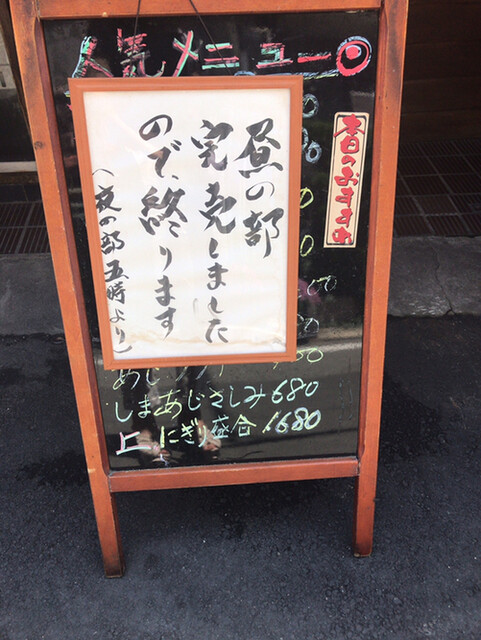 人気メニュー
本日のおすすめ
昼の部
完売しました
ので終ります
(夜の部五時より)
しまあじさしみ680
上にぎり盛合1,680